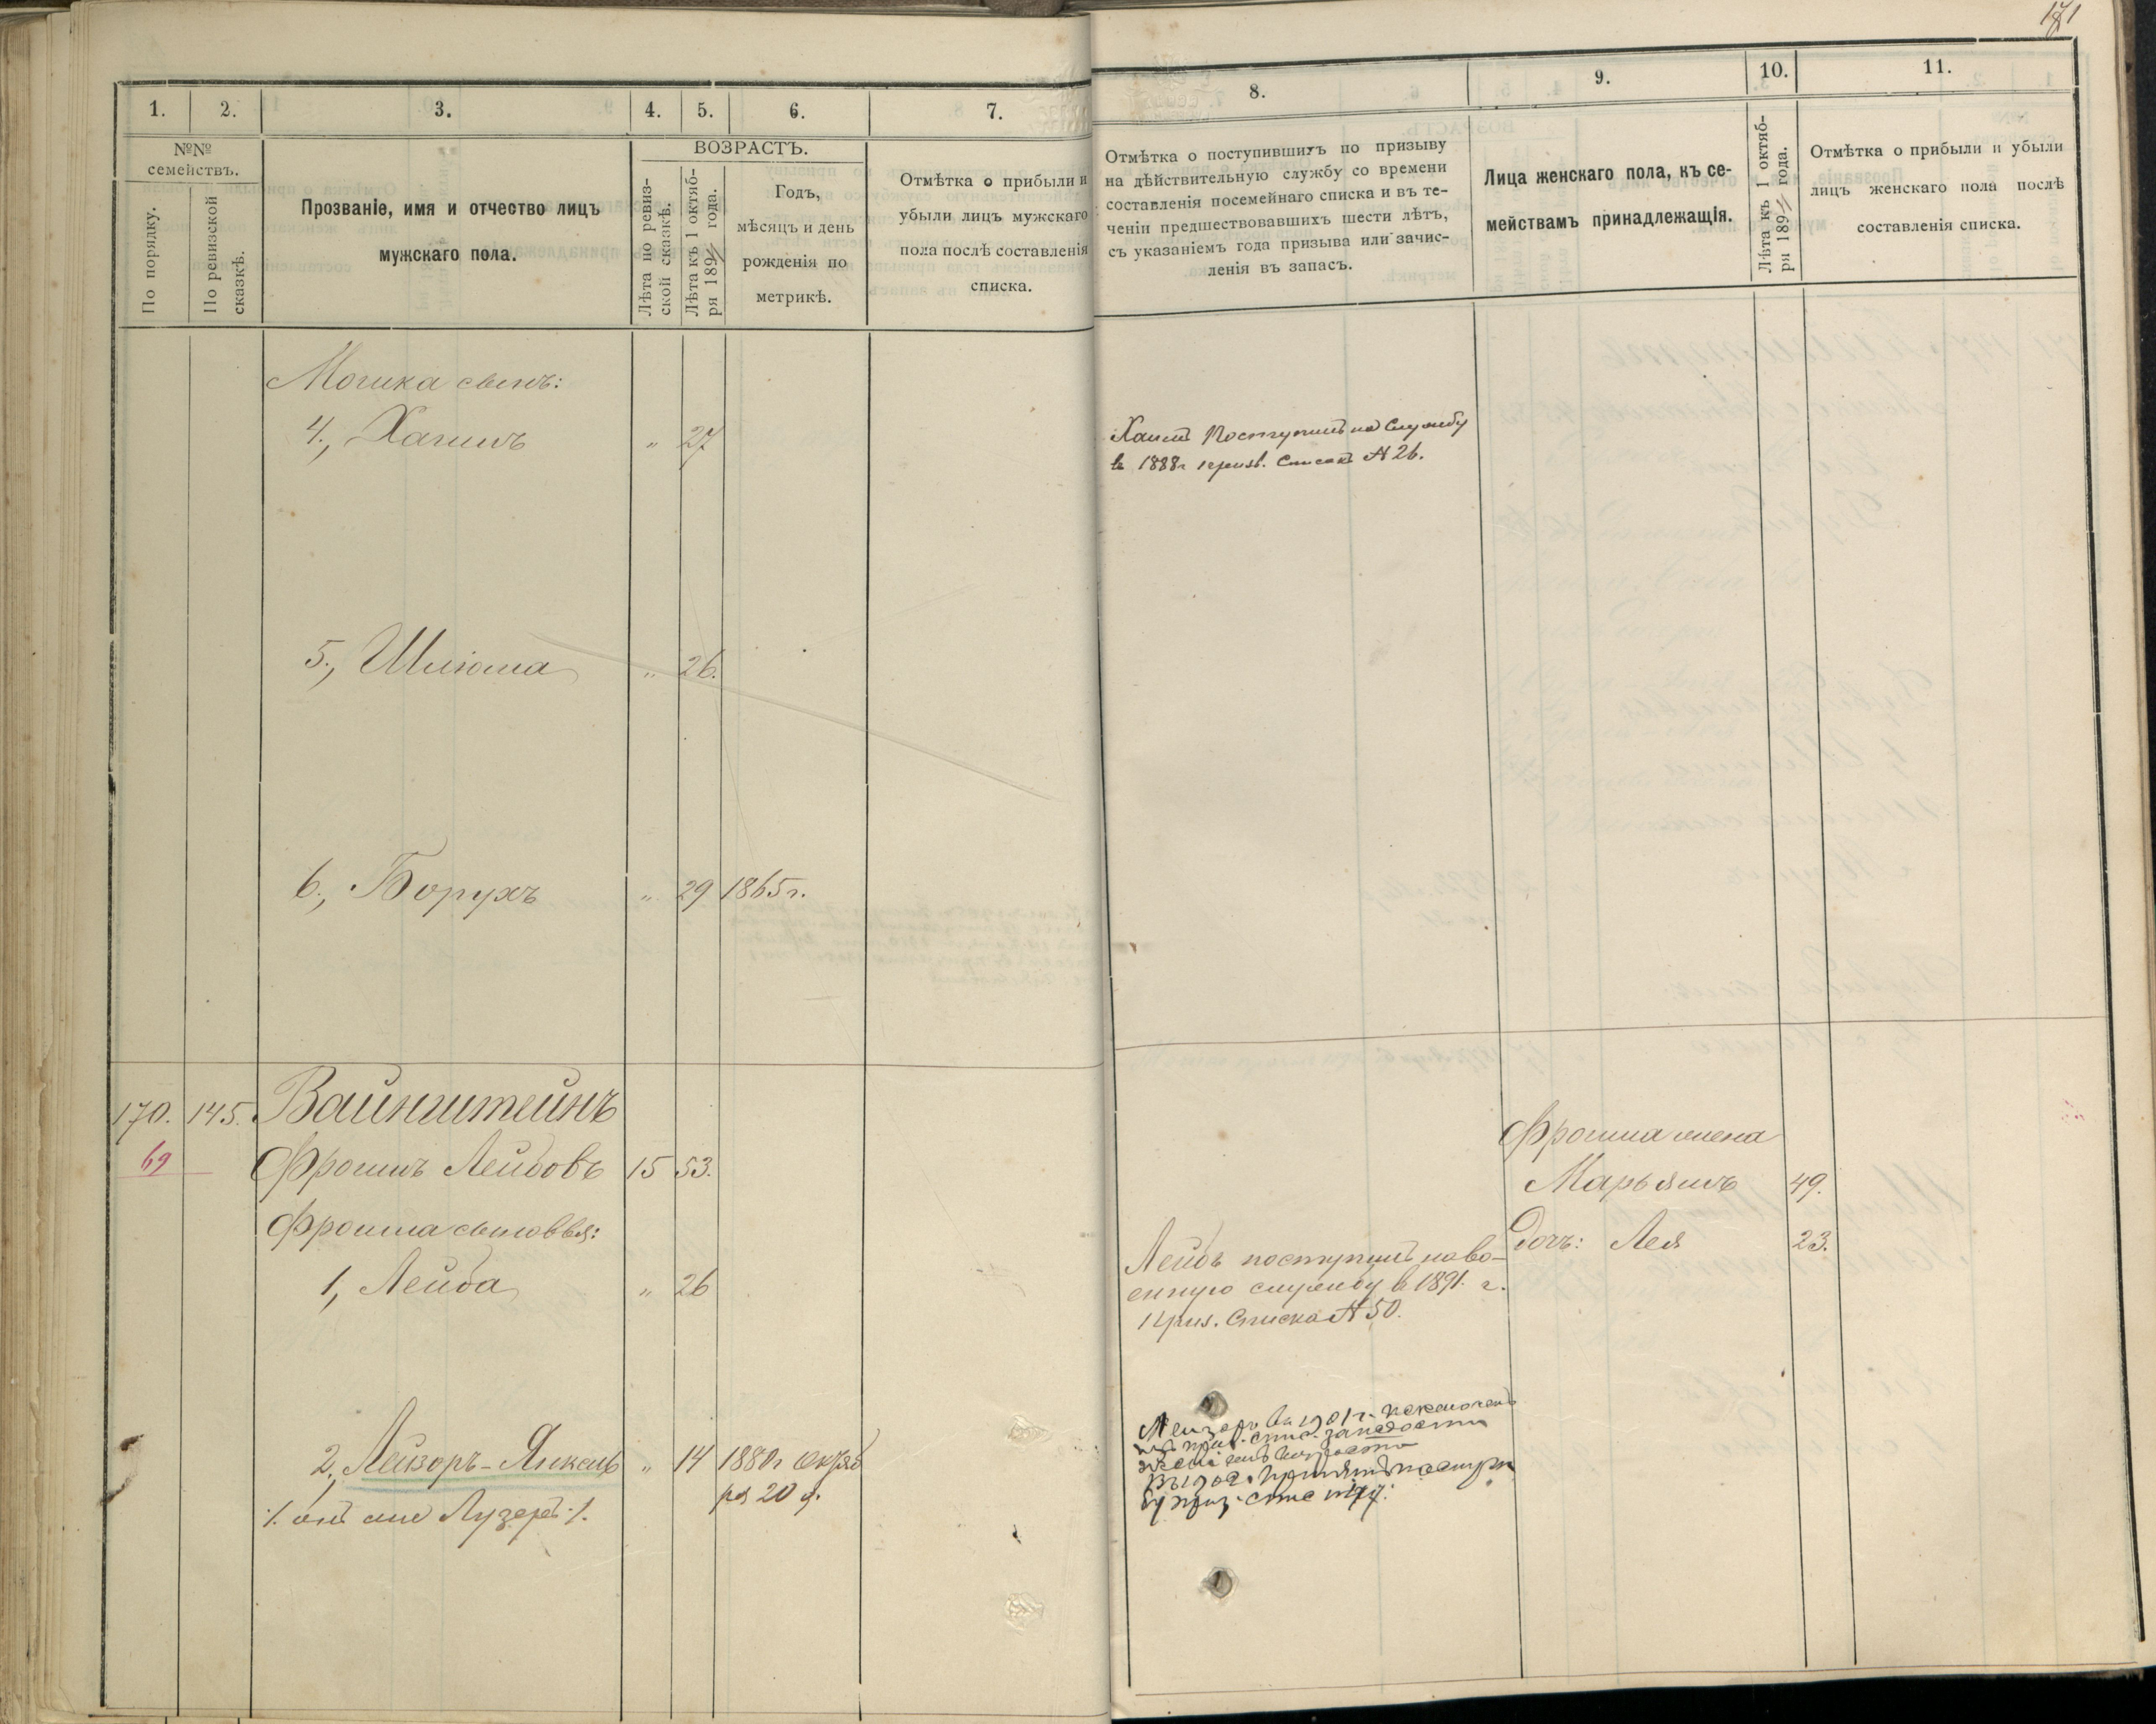 171
1.
2.
3.
4.
5.
6.
7.
8.
9.
10.
11.
№№ семействъ.
По порядку.
По ревизской сказкѣ.
Прозваніе, имя и отчество лицъ
мужскаго пола.
ВОЗРАСТЪ.
Лѣта по ревиз-
ской сказкѣ.
Лѣта къ 1 октяб-
ря 189 года.
Годъ,
мѣсяцъ и день
рожденія по
метрикѣ.
Отмѣтка о прибыли и
убыли лицъ мужскаго
пола послѣ составленія
списка.
Отмѣтка о поступившихъ по призыву
на дѣйствительную службу со времени
составленія посемейнаго списка и въ те-
ченіи предшествовавшихъ шести лѣтъ,
съ указаніемъ года призыва или зачис-
ленія въ запасъ.
Лица женскаго пола, къ се-
мействамъ принадлежащія.
Лѣта къ 1 октяб-
ря 189 года.
Отмѣтка о прибыли и убыли
лицъ женскаго пола послѣ
составленія списка.
Мошка сынъ:
4., Хаимъ " 27
Хаимъ Поступилъ на Службу
в 1888г призв. Списокъ № 26.
5., Шліома " 26.
6., Борухъ " 29 1865г.
170. 145. Вайнштейнъ
69 Фроимъ Лейбовъ 15 53.
Фроима жена
Марьямъ 49.
Фроима сыновья:
дочь: Лея 23.
1, Лейба " 26
Лейбъ поступилъ на во-
енную службу в 1891. г.
приз. Списка № 50.
2., Лейзоръ-Янкель " 14 1880г Октяб
ря 20 д.
·/. онъ же Лузеръ ·/.
Лейзоръ въ 1901 г. исключенъ